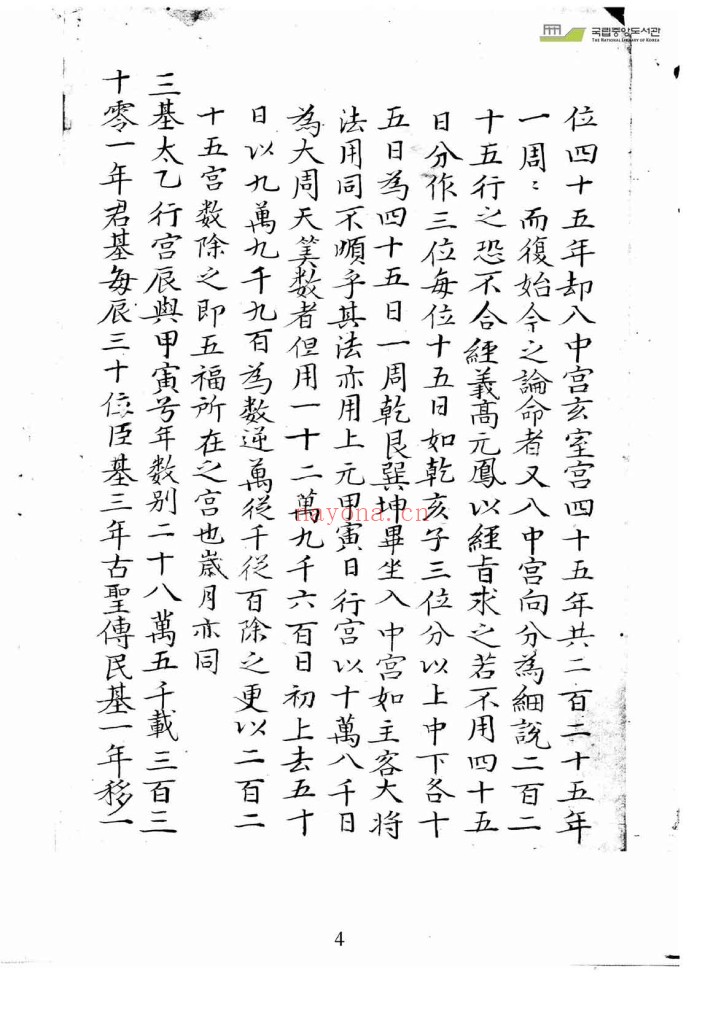 국립중앙도서관
THE NATIONAL LIBRARY OF KOREA
位四十五年却八中宫亥室宫四十五年共二百二十五年
一周〻而復始今之論命者又八中宫向分為細說二百二
十五行之恐不合經義髙元鳳以經旨求之若不用四十五
日分作三位每位十五日如乾亥子三位分以上中下各十
五日為四十五日一周乾艮巽坤畢坐入中宫如主客大将
法用同不順乎其法亦用上元甲寅日行宫以十萬八千日
為大周天筭数者但用一十二萬九千六百日初上去五十
日以九萬九千九百為數逆萬從千從百除之更以二百二
十五宫数除之即五福所在之宫也嵗月亦同
三基太乙行宫辰與甲寅号年数别二十八萬五千載三百三
十零一年君基每辰三十位臣基三年古聖傳民基一年移一
nayona.cn
4